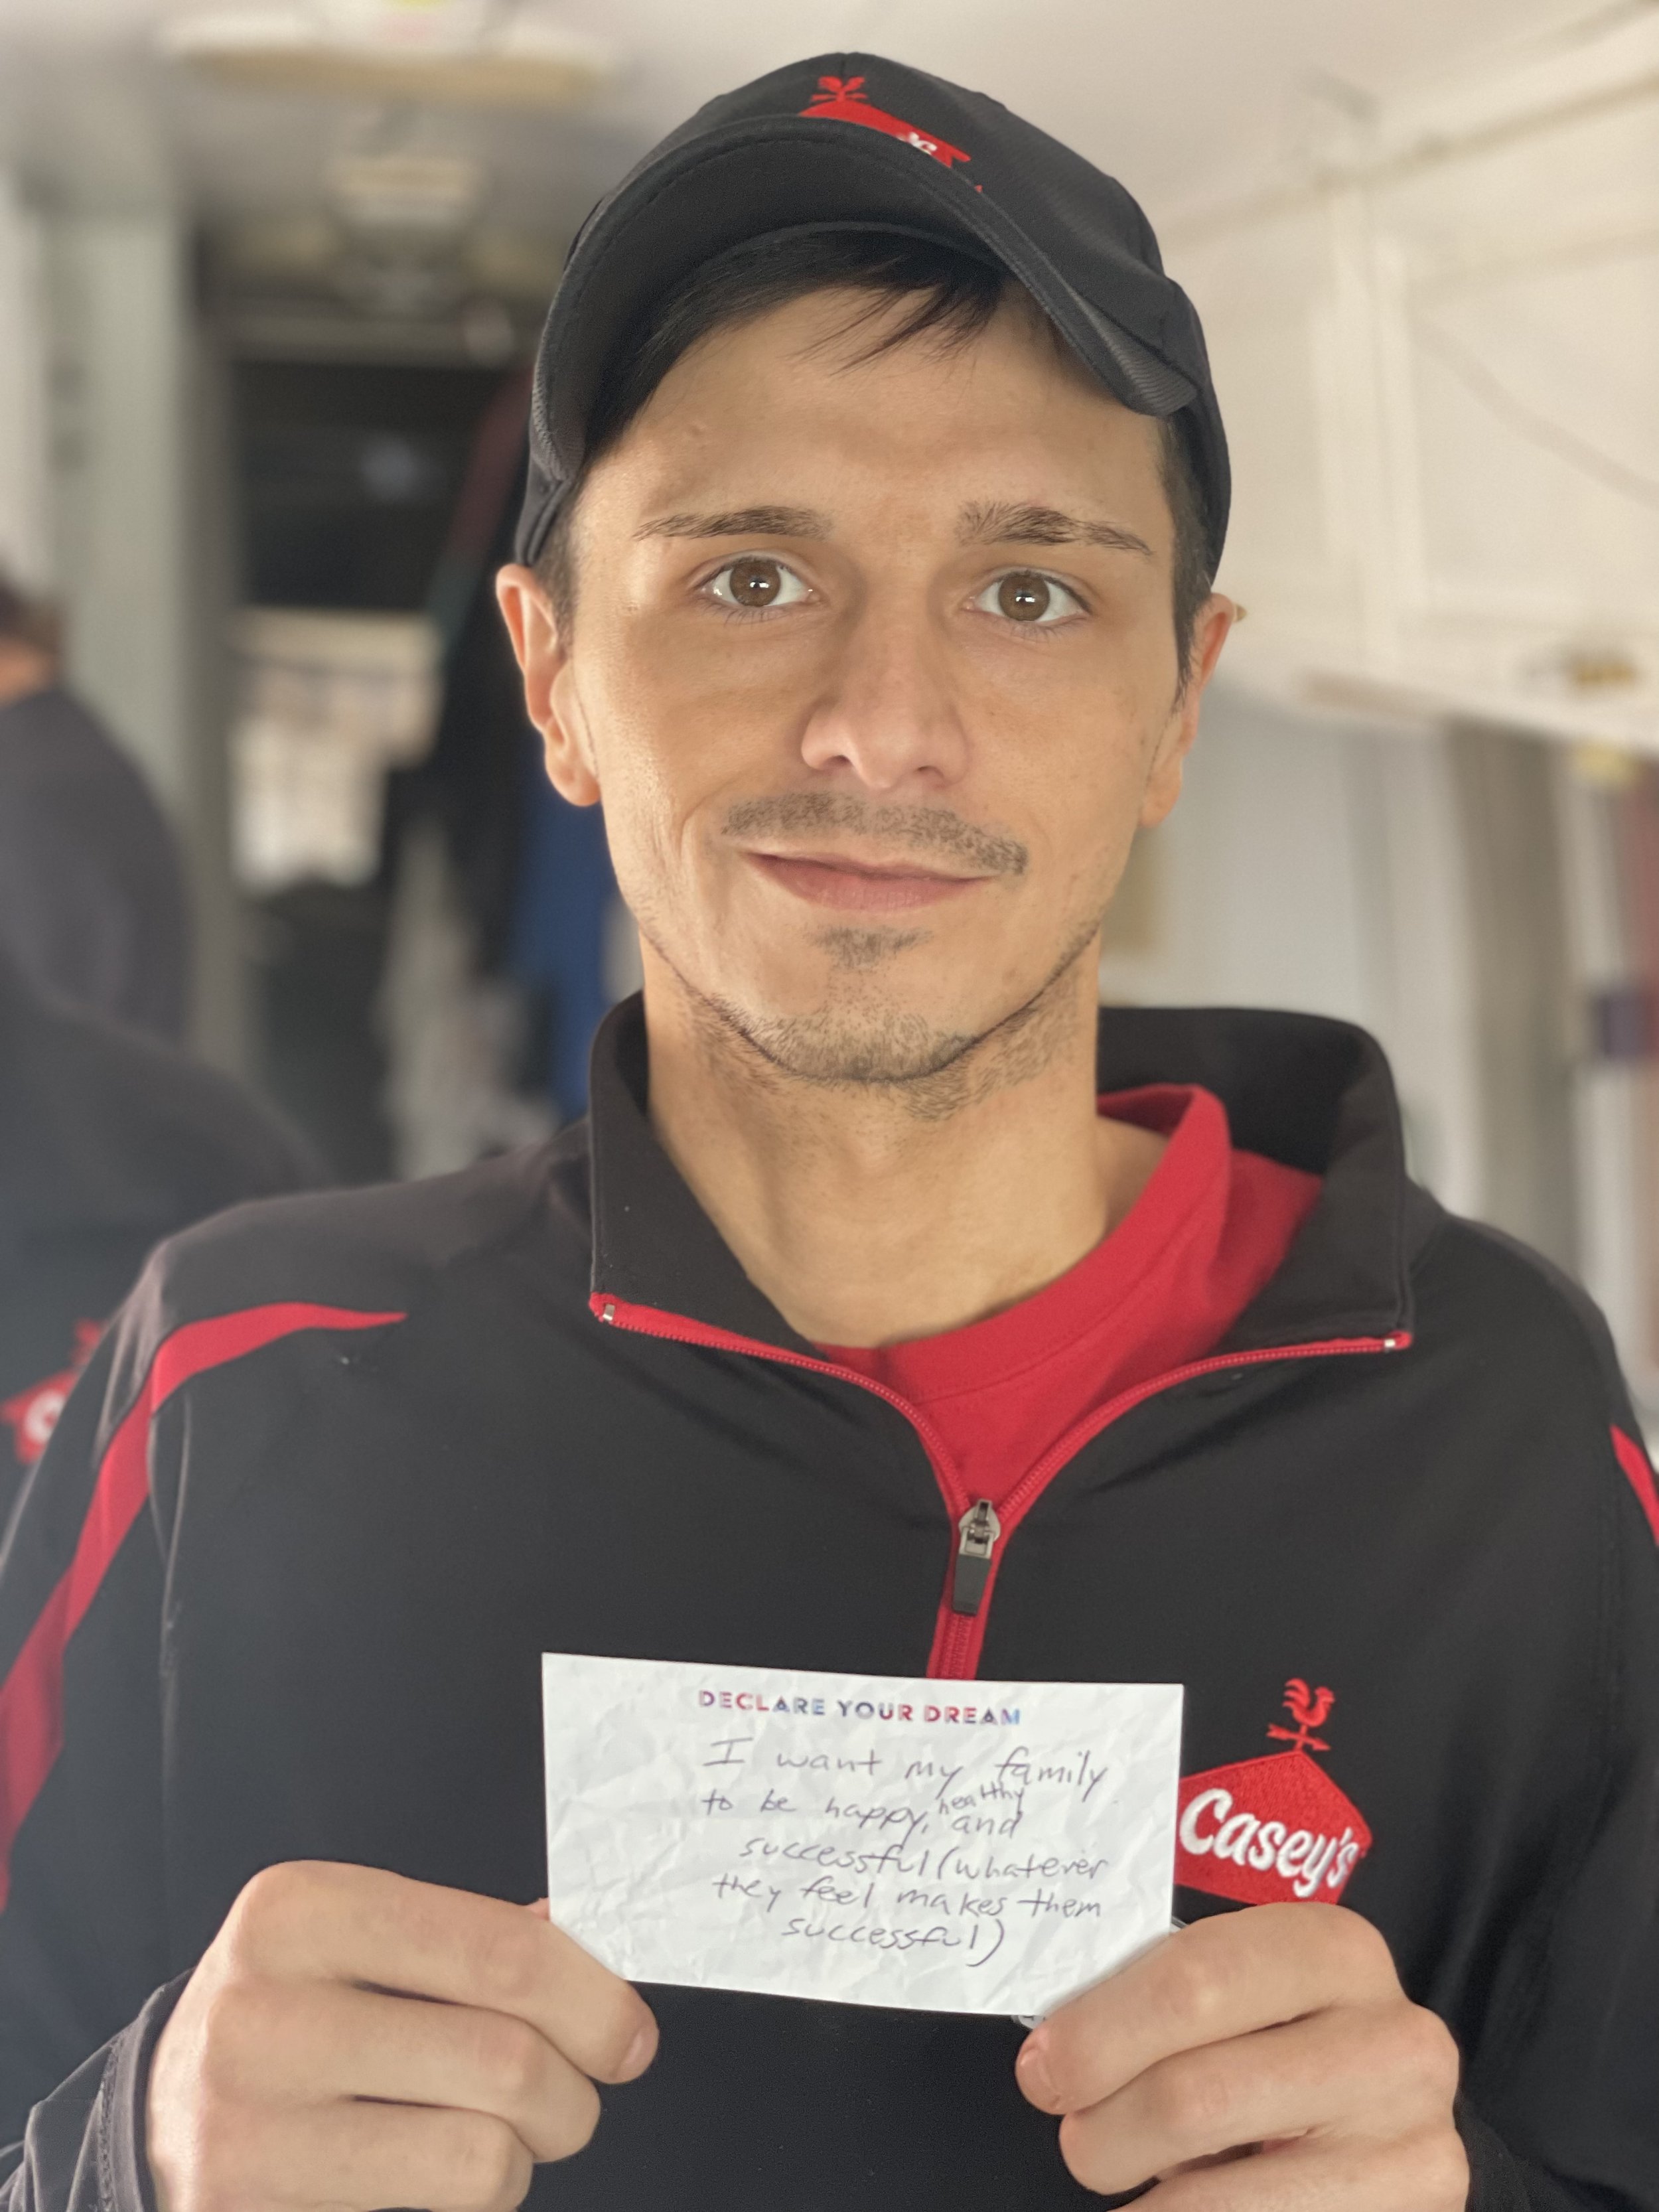 DECLARE YOUR DREAM
I want my family
to be happy, healthy and
successful (whatever
they feel makes them
successful)
Casey's